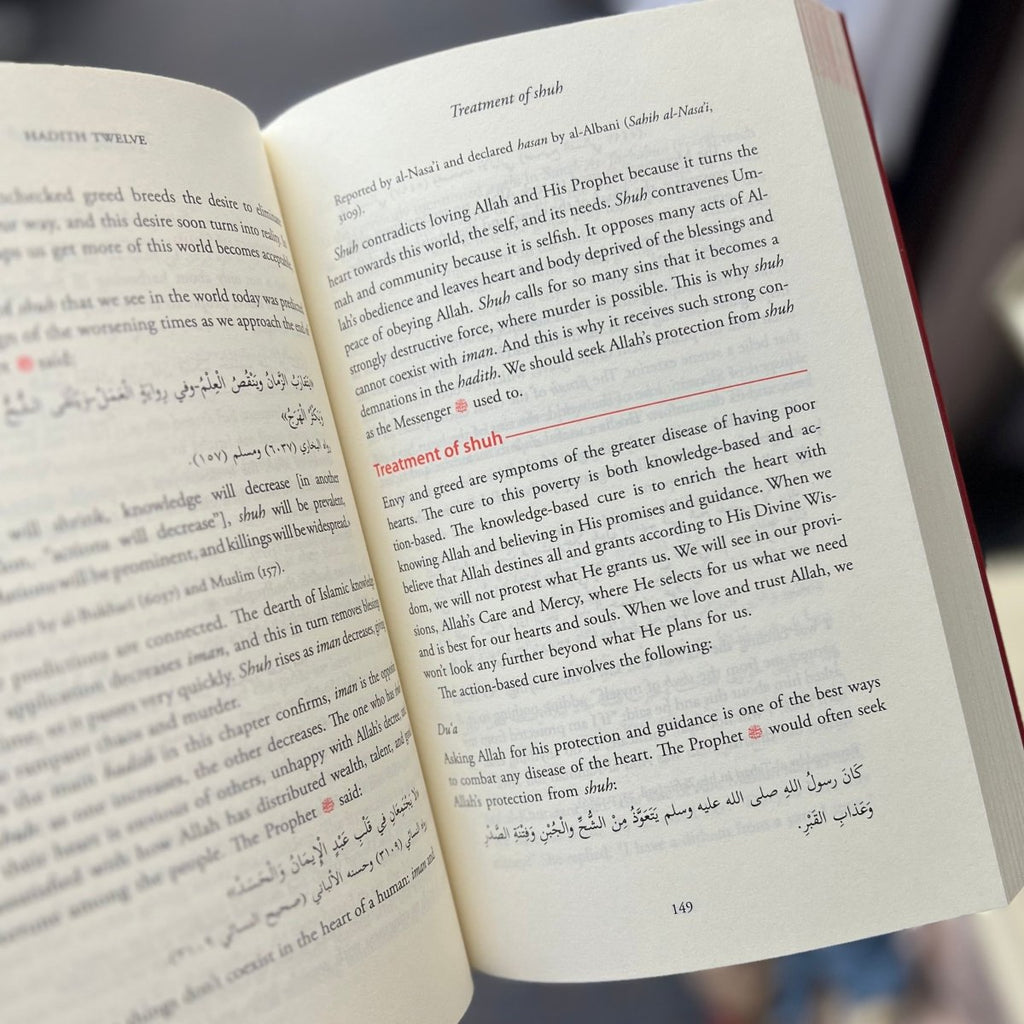 HADITH TWELVE
unchecked greed breeds the desire to
way, and this desire soon turns into
us get more of this world becomes
of shuh that we see in the world today was
of the worsening times as we approach the end of
said:
يتقارب الزَّمانُ ويَنْقُصُ الْعِلْمُ-وفي رِوايَةٍ الْعَمَلُ-ويُلْقَى الشُّحُّ
وَيَكْثُرُ الْهَرْجُ»
رواه البخاري (٦٠٣٧) ومسلم (١٥٧).
will shrink, knowledge will decrease [in another
"actions will decrease"], shuh will be prevalent,
will be prominent, and killings will be widespread.
by al-Bukhari (6037) and Muslim (157).
predictions are connected. The dearth of Islamic knowledge
application decreases iman, and this in turn removes blessing
it passes very quickly. Shuh rises as iman decreases,
rampant chaos and murder.
hadith in this chapter confirms, iman is the
one increases, the other decreases. The one who has
their heart is envious of others, unhappy with Allah's decree,
with how Allah has distributed wealth, talent, and
among the people. The Prophet ﷺ said:
«لا يَجْتَمِعَانِ فِي قَلْبِ عَبْدٍ الْإِيمَانُ وَالْحَسَدُ»
رواه النسائي (٣١٠٩) وحسنه الألباني (صحيح النسائي ٣١٠٩).
things don't coexist in the heart of a human: iman and
Treatment of shuh
Reported by al-Nasa'i and declared hasan by al-Albani (Sahih al-Nasa'i,
3109).
Shuh contradicts loving Allah and His Prophet because it turns the
heart towards this world, the self, and its needs. Shuh contravenes Um-
mah and community because it is selfish. It opposes many acts of Al-
lah's obedience and leaves heart and body deprived of the blessings and
peace of obeying Allah. Shuh calls for so many sins that it becomes a
strongly destructive force, where murder is possible. This is why shuh
cannot coexist with iman. And this is why it receives such strong con-
demnations in the hadith. We should seek Allah's protection from shuh
as the Messenger ﷺ used to.
Treatment of shuh
Envy and greed are symptoms of the greater disease of having poor
hearts. The cure to this poverty is both knowledge-based and ac-
tion-based. The knowledge-based cure is to enrich the heart with
knowing Allah and believing in His promises and guidance. When we
believe that Allah destines all and grants according to His Divine Wis-
dom, we will not protest what He grants us. We will see in our provi-
sions, Allah's Care and Mercy, where He selects for us what we need
and is best for our hearts and souls. When we love and trust Allah, we
won't look any further beyond what He plans for us.
The action-based cure involves the following:
Du'a
Asking Allah for his protection and guidance is one of the best ways
to combat any disease of the heart. The Prophet ﷺ would often seek
Allah's protection from shuh:
كَانَ رسولُ اللهِ صلى الله عليه وسلم يَتَعَوَّذُ مِنْ الشُّحِّ والْجُبْنِ وَفِتْنَةِ الصَّدْرِ
وَعَذابِ القَبْرِ.
149